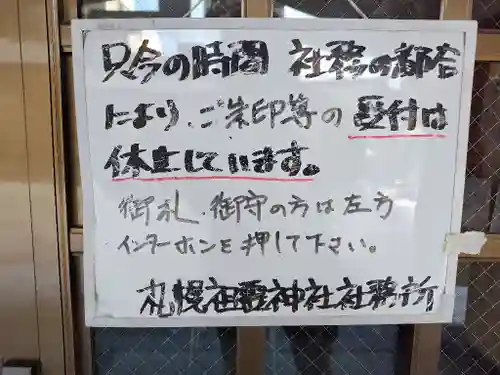 只今の時間 社務の都合
により、ご朱印等の受付は
休止しています。
御札、御守の方は左方
インターホンを押して下さい。
札幌祖霊神社社務所